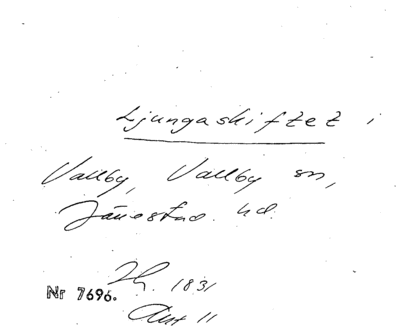 Ljungaskiftet i
Vallby, Vallby sn,
Järrestad. hd.
1831
Nr 7696.
Akt 11